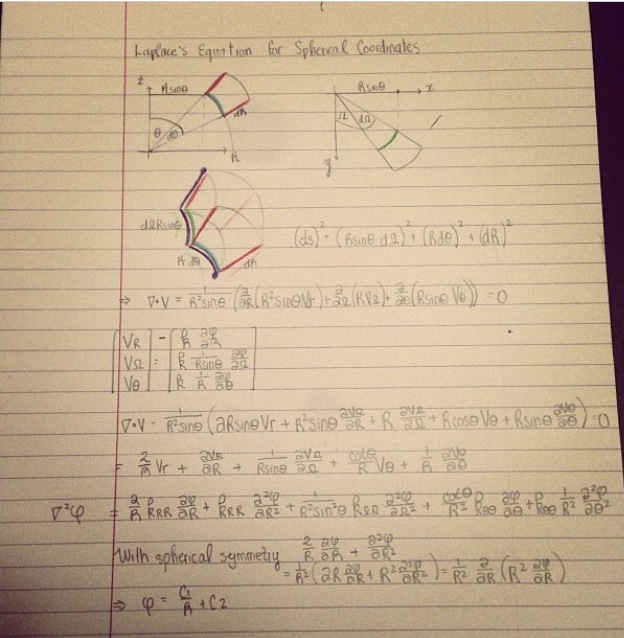 Laplace's Equation for Spherical Coordinates
z Rsinθ
θ dθ dR
R
Rsinθ x
Ω dΩ
y
dΩRsinθ
Rdθ dR
(ds)² = (Rsinθ dΩ)² + (Rdθ)² + (dR)²
⇒ ∇•V = 1/R²sinθ (∂/∂R(R²sinθVr) + ∂/∂Ω(RVΩ) + ∂/∂θ(Rsinθ Vθ)) = 0
VR
VΩ =
Vθ
∇•V = 1/R²sinθ (2RsinθVr + R²sinθ ∂VR/∂R + R ∂VΩ/∂Ω + RcosθVθ + Rsinθ ∂Vθ/∂θ) = 0
= 2/R Vr + ∂VR/∂R + 1/Rsinθ ∂VΩ/∂Ω + cotθ/R Vθ + 1/R ∂Vθ/∂θ
∇²φ = 2/R ∂φ/∂R + ∂²φ/∂R² + 1/R²sin²θ ∂²φ/∂Ω² + cotθ/R² ∂φ/∂θ + 1/R² ∂²φ/∂θ²
With spherical symmetry 2/R ∂φ/∂R + ∂²φ/∂R²
= 1/R² (2R ∂φ/∂R + R² ∂²φ/∂R²) = 1/R² ∂/∂R (R² ∂φ/∂R)
⇒ φ = C1/R + C2